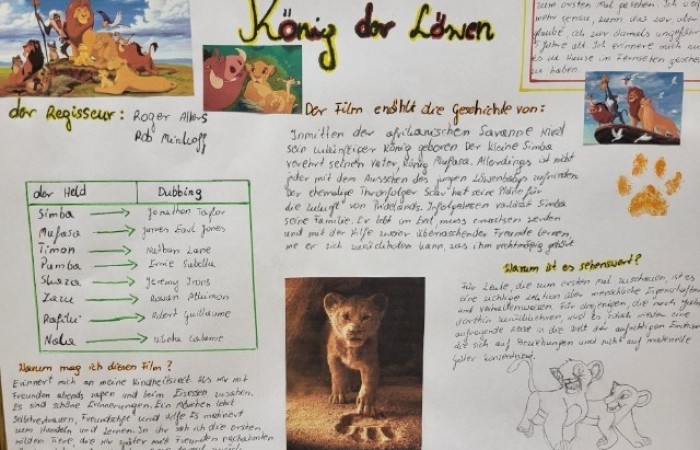 König der Löwen
zum ersten Mal gesehen. Ich
mehr genau, wann das war, aber
glaube, ich war damals ungefähr
Jahre alt. Ich erinnere mich
es zu Hause im Fernsehen gesehen
zu haben.
der Regisseur: Roger Allers
Rob Minkoff
Der Film erzählt die Geschichte von:
Inmitten der afrikanischen Savanne wird
sein zukünftiger König geboren. Der kleine Simba
verehrt seinen Vater, König Mufasa. Allerdings ist nicht
jeder mit dem Aussehen des jungen Löwenbabys zufrieden.
Der ehemalige Thronfolger Scar hat seine Pläne für
die Zukunft von Pridelands. Infolgedessen verlässt Simba
seine Familie. Er lebt im Exil, muss erwachsen werden
und mit der Hilfe zweier überraschender Freunde lernen,
wie er sich zurückholen kann, was ihm rechtmäßig gehört.
der Held Dubbing
Simba → Jonathan Taylor
Mufasa → James Earl Jones
Timon → Nathan Lane
Pumba → Ernie Sabella
Skaza → Jeremy Irons
Zazu → Rowan Atkinson
Rafiki → Robert Guillaume
Nala →
Warum ist es sehenswert?
Für Leute, die zum ersten Mal zuschauen, ist es
eine wichtige Lektion über menschliche Eigenschaften
und Verhaltensweisen. Für diejenigen, die nach
dorthin zurückkehren, wird es
aufregende Reise in die Welt der aufrichtigen
die sich auf Beziehungen und nicht auf materielle
Güter konzentriert.
Warum mag ich diesen Film?
Erinnert mich an meine Kindheitszeit. Als wir mit
Freunden abends und beim Essen zusahen.
Es sind schöne Erinnerungen. Ein Märchen lehrt
Selbstvertrauen, Freundschaft und Hilfe. Es motiviert
zum Handeln und Lernen. In ihr sah ich die ersten
wilden Tiere, die wir später mit Freunden nachahmten